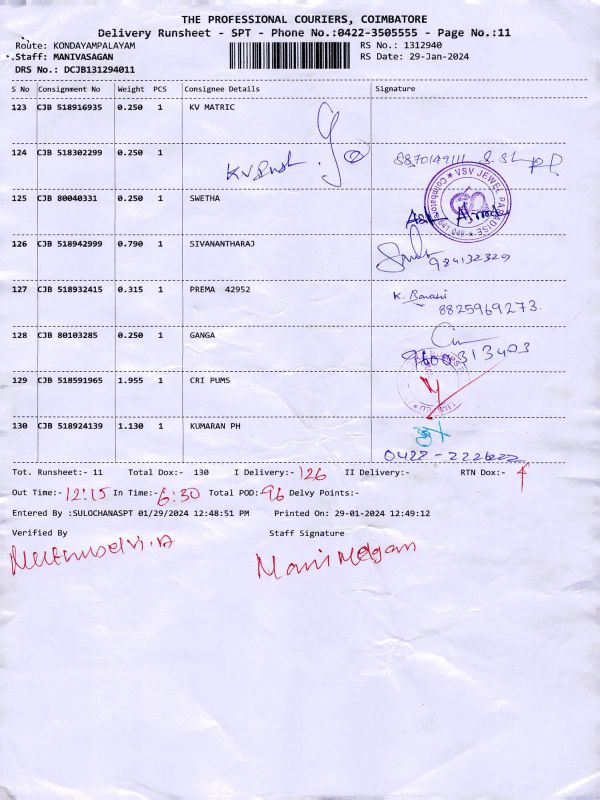 THE PROFESSIONAL COURIERS, COIMBATORE
Delivery Runsheet - SPT - Phone No.:0422-3505555 - Page No.:11
Route: KONDAYAMPALAYAM RS No.: 1312940
Staff: MANIVASAGAN RS Date: 29-Jan-2024
DRS No.: DCJB131294011
S No Consignment No Weight PCS Consignee Details Signature
123 CJB 518916935 0.250 1 KV MATRIC
124 CJB 518302299 0.250 1 8870149111
VSV JEWEL PARADISE
125 CJB 80040331 0.250 1 SWETHA
126 CJB 518942999 0.790 1 SIVANANTHARAJ
127 CJB 518932415 0.315 1 PREMA 42952 K.
8825969273
128 CJB 80103285 0.250 1 GANGA
9600313403
129 CJB 518591965 1.955 1 CRI PUMS
130 CJB 518924139 1.130 1 KUMARAN PH
0422-2221222
Tot. Runsheet:- 11 Total Dox:- 130 I Delivery:- 126 II Delivery:- RTN Dox:- 4
Out Time:- 12:15 In Time:- 6:30 Total POD:- 96 Delvy Points:-
Entered By :SULOCHANASPT 01/29/2024 12:48:51 PM Printed On: 29-01-2024 12:49:12
Verified By Staff Signature